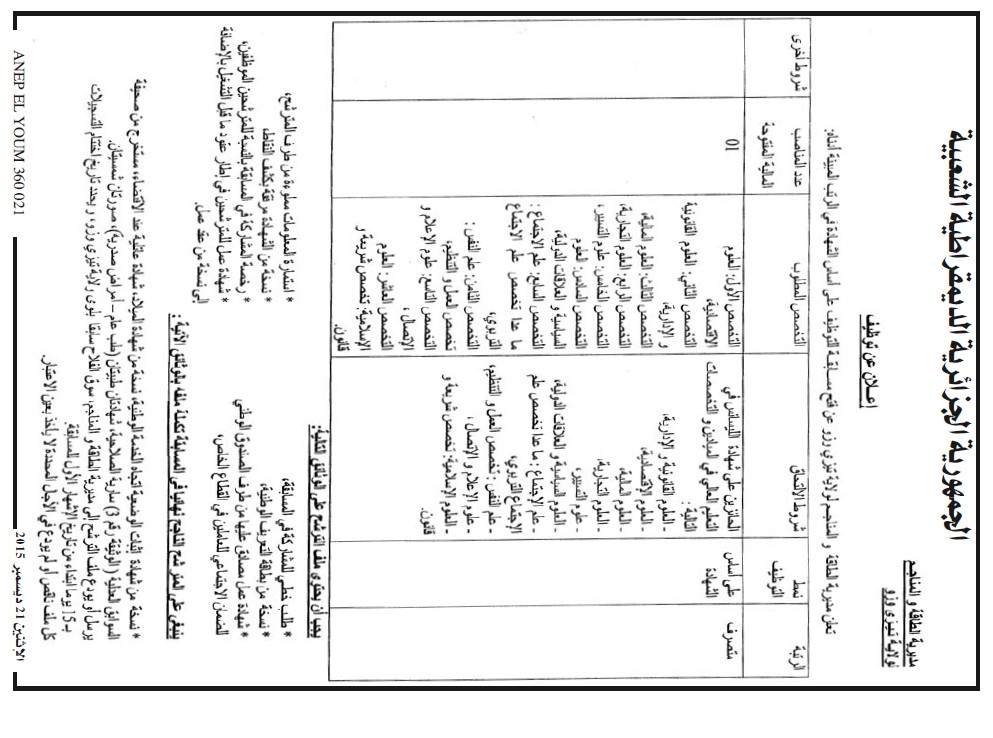 الجمهورية الجزائرية الديمقراطية الشعبية
مديرية الطاقة و المناجم
لولاية تيزي وزو
إعــلان عن توظيف
تعلن مديرية الطاقة و المناجم لولاية تيزي وزو عن فتح مسابقة التوظيف على أساس الشهادة في الرتب المبينة أدناه:
الرتبة
نمط
التوظيف
شروط الالتحاق
التخصص المطلوب
عدد المناصب
المالية المفتوحة
شروط أخرى
متصرف
على أساس
الشهادة
الحائزين على شهادة الليسانس في
التعليم العالي في الميادين و التخصصات
التالية:
- العلوم القانونية و الإدارية،
- العلوم الاقتصادية،
- العلوم المالية،
- العلوم التجارية،
- علوم التسيير،
- العلوم السياسية و العلاقات الدولية،
- علم الإجتماع : ما عدا تخصص علم
الإجتماع التربوي،
- علم النفس : تخصص العمل و التنظيم،
- علوم الإعلام و الإتصال ،
- العلوم الإسلامية: تخصص شريعة و
قانون.
التخصص الأول: العلوم
الاقتصادية،
التخصص الثاني: العلوم القانونية
و الإدارية،
التخصص الثالث: العلوم المالية،
التخصص الرابع: العلوم التجارية،
التخصص الخامس: علوم التسيير،
التخصص السادس: العلوم
السياسية و العلاقات الدولية،
التخصص السابع: علم الإجتماع :
ما عدا تخصص علم الإجتماع
التربوي،
التخصص الثامن: علم النفس :
تخصص العمل و التنظيم،
التخصص التاسع: علوم الإعلام و
الإتصال ،
التخصص العاشر: العلوم
الإسلامية: تخصص شريعة و
قانون.
01
يجب أن يحتوي ملف الترشح على الوثائق التالية:
* طلب خطي للمشاركة في المسابقة،
* نسخة من بطاقة التعريف الوطنية،
* شهادة عمل مصادق عليها من طرف الصندوق الوطني
للضمان الاجتماعي للعاملين في القطاع الخاص،
* استمارة المعلومات مملوءة من طرف المترشح،
* نسخة من الشهادة مرفقة بكشف النقاط،
* رخصة المشاركة في المسابقة بالنسبة للمترشحين الموظفين،
* شهادة عمل للمترشحين في إطار عقود ما قبل التشغيل بالإضافة
إلى نسخة من عقد عمل.
ينبغي على المترشح الناجح نهائيا في المسابقة تكملة ملفه بالوثائق الآتية :
* نسخة من شهادة إثبات الوضعية اتجاه الخدمة الوطنية، نسخة من شهادة الميلاد، شهادة عائلية عند الاقتضاء، مستخرج من صحيفة
السوابق العدلية (الوثيقة رقم 3) سارية الصلاحية، شهادتان طبيتان (طب عام – أمراض صدرية)، صورتان شمسيتان.
يرسل أو يودع ملف الترشح إلى مديرية الطاقة و المناجم، سوق الفلاح سابقا بلوى ولاية تيزي وزو، و يحدد تاريخ اختتام التسجيلات
بـ 15 يوما ابتداء من تاريخ الإشهار الأول للمسابقة.
كل ملف ناقص أو لم يودع في الآجال المحددة لا يأخذ بعين الاعتبار.
الاثنين 21 ديسمبر 2015
ANEP EL YOUM 360 021